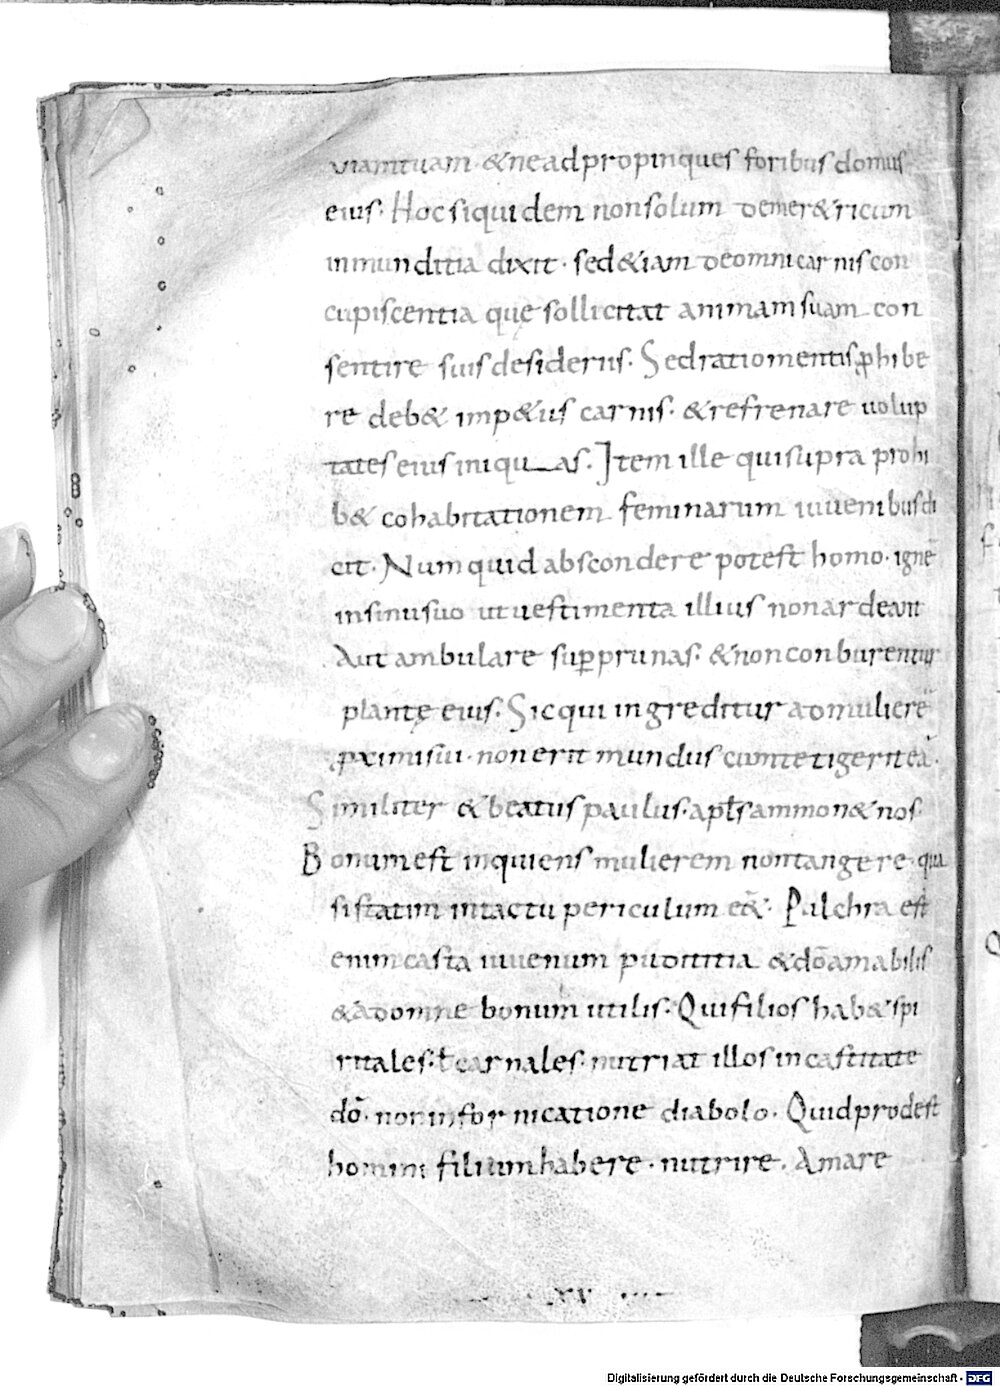 viam tuam · & ne ad propinques foribus domus
eius · Hoc siquidem non solum de mer&ricum
inmunditia dixit · sed &iam de omni carnis con
cupiscentia quę sollicitat animam suam con
sentire suis desideriis · Sed ratio mentis ꝓhibe
re deb& imp&us carnis · & refrenare uolup
tates eius iniquas · Item ille qui supra prohi
b& cohabitationem feminarum iuuenibus di
cit · Numquid abscondere potest homo · ignē
in sinu suo ut uestimenta illius non ardeant
Aut ambulare suꝑ prunas · & non conburentur
plantę eius · Sic qui ingreditur ad mulierē
ꝓximi sui · non erit mundus cum tetigerit eā ·
Similiter & beatus paulus · apl̅s ammon& nos
Bonum est inquiens mulierem non tangere · qua
si statim in tactu periculum eēt · Pulchra est
enim casta iuuenum pudititia & dō amabilis
& ad omne bonum utilis · Qui filios hab& spi
ritales · ł carnales · nutriat illos in castitate
dō · non in fornicatione diabolo · Quid prodest
homini filium habere · nutrire · Amare
XV
Digitalisierung gefördert durch die Deutsche Forschungsgemeinschaft · DFG